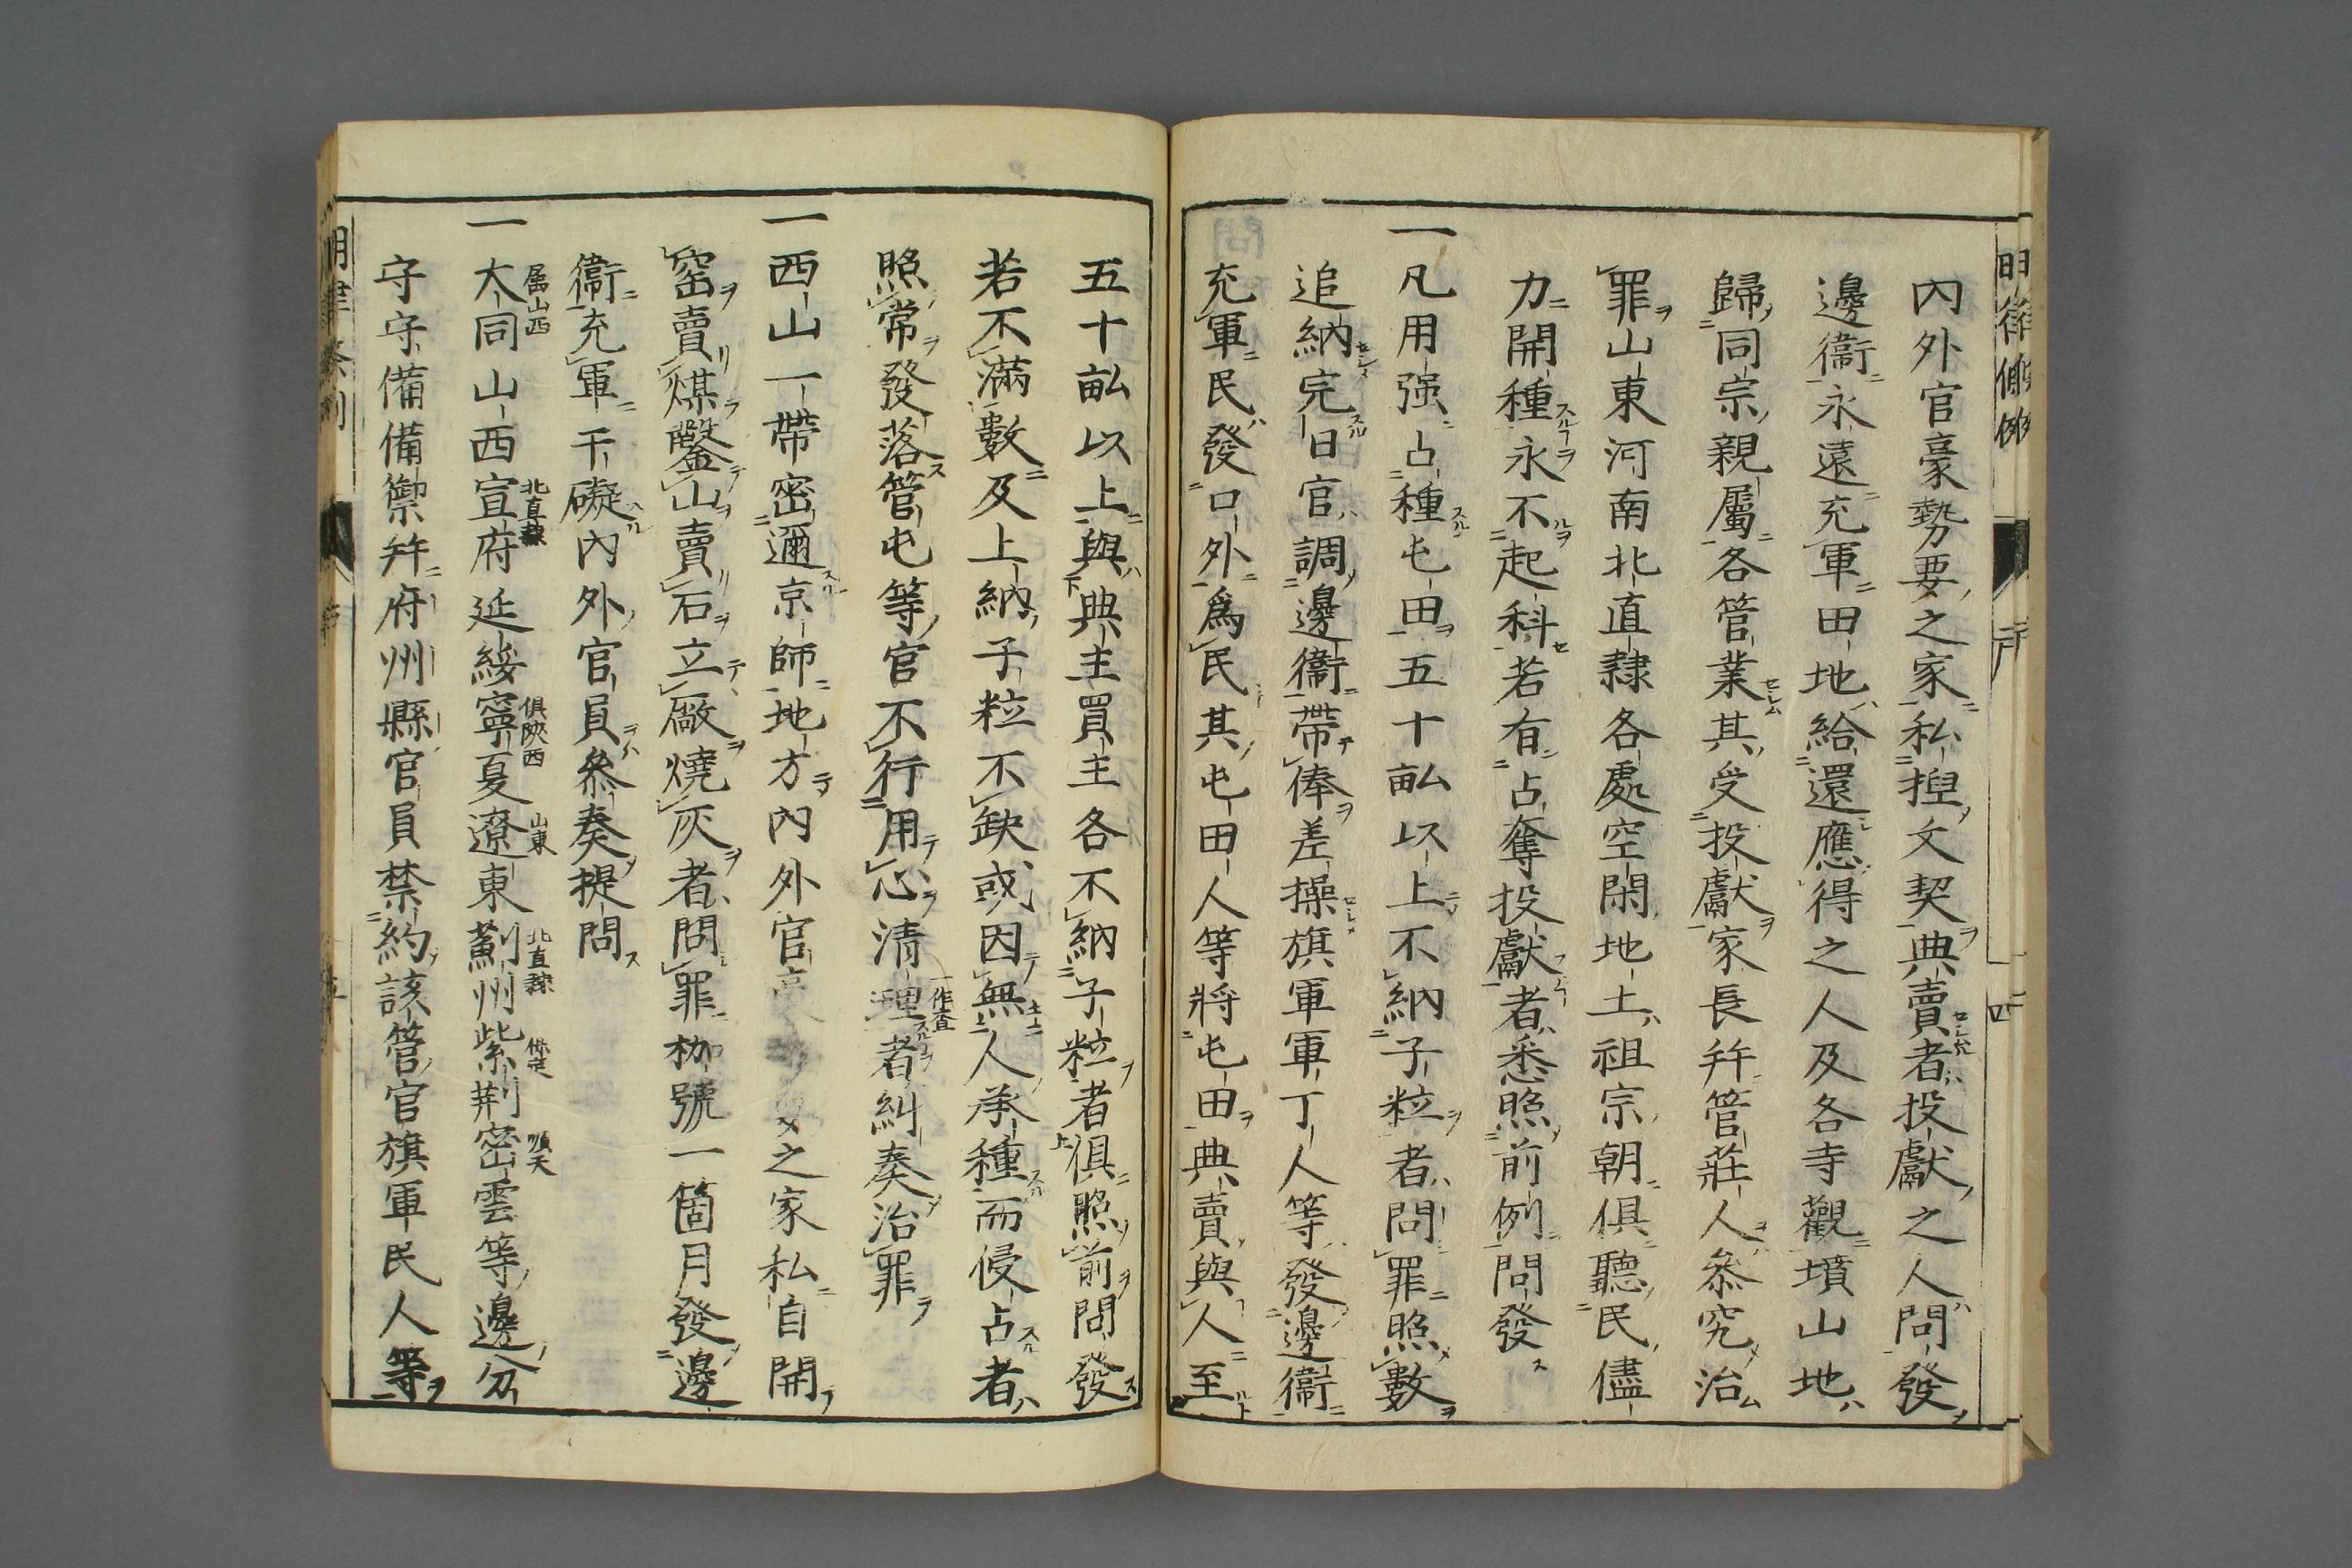 內外官豪勢要之家私揑文契典賣者投獻之人問發
邊衞永遠充軍田地給還應得之人及各寺觀墳山地
歸同宗親屬各管業其受投獻家長幷管莊人叅究治
罪山東河南北直隸各處空閑地土祖宗朝俱聽民儘
力開種永不起科若有占奪投獻者悉照前例問發
一凡用强占種屯田五十畝以上不納子粒者問罪照數
追納完日官調邊衞帶俸差操旗軍軍丁人等發邊衞
充軍民發口外爲民其屯田人等將屯田典賣與人至
五十畝以上與典主買主各不納子粒者俱照前問發
若不滿數及上納子粒不缺或因無人承種而侵占者
照常發落管屯等官不行用心清理者糾奏治罪
一作查
一西山一帶密邇京師地方內外官之家私自開
窑賣煤鑿山賣石立厰燒灰者問罪枷號一箇月發邊
衞充軍干礙內外官員叅奏提問
一大同山西宣府延綏寧夏遼東薊州紫荆密雲等邊分
屬山西 北直隸 俱陝西 山東 北直隸 保定 順天
守守備備禦幷府州縣官員禁約該管官旗軍民人等